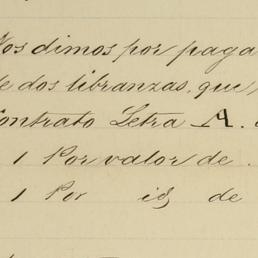 Nos dimos por paga
de dos libranzas, que
Contrato Letra A.
1 Por valor de
1 Por id, de